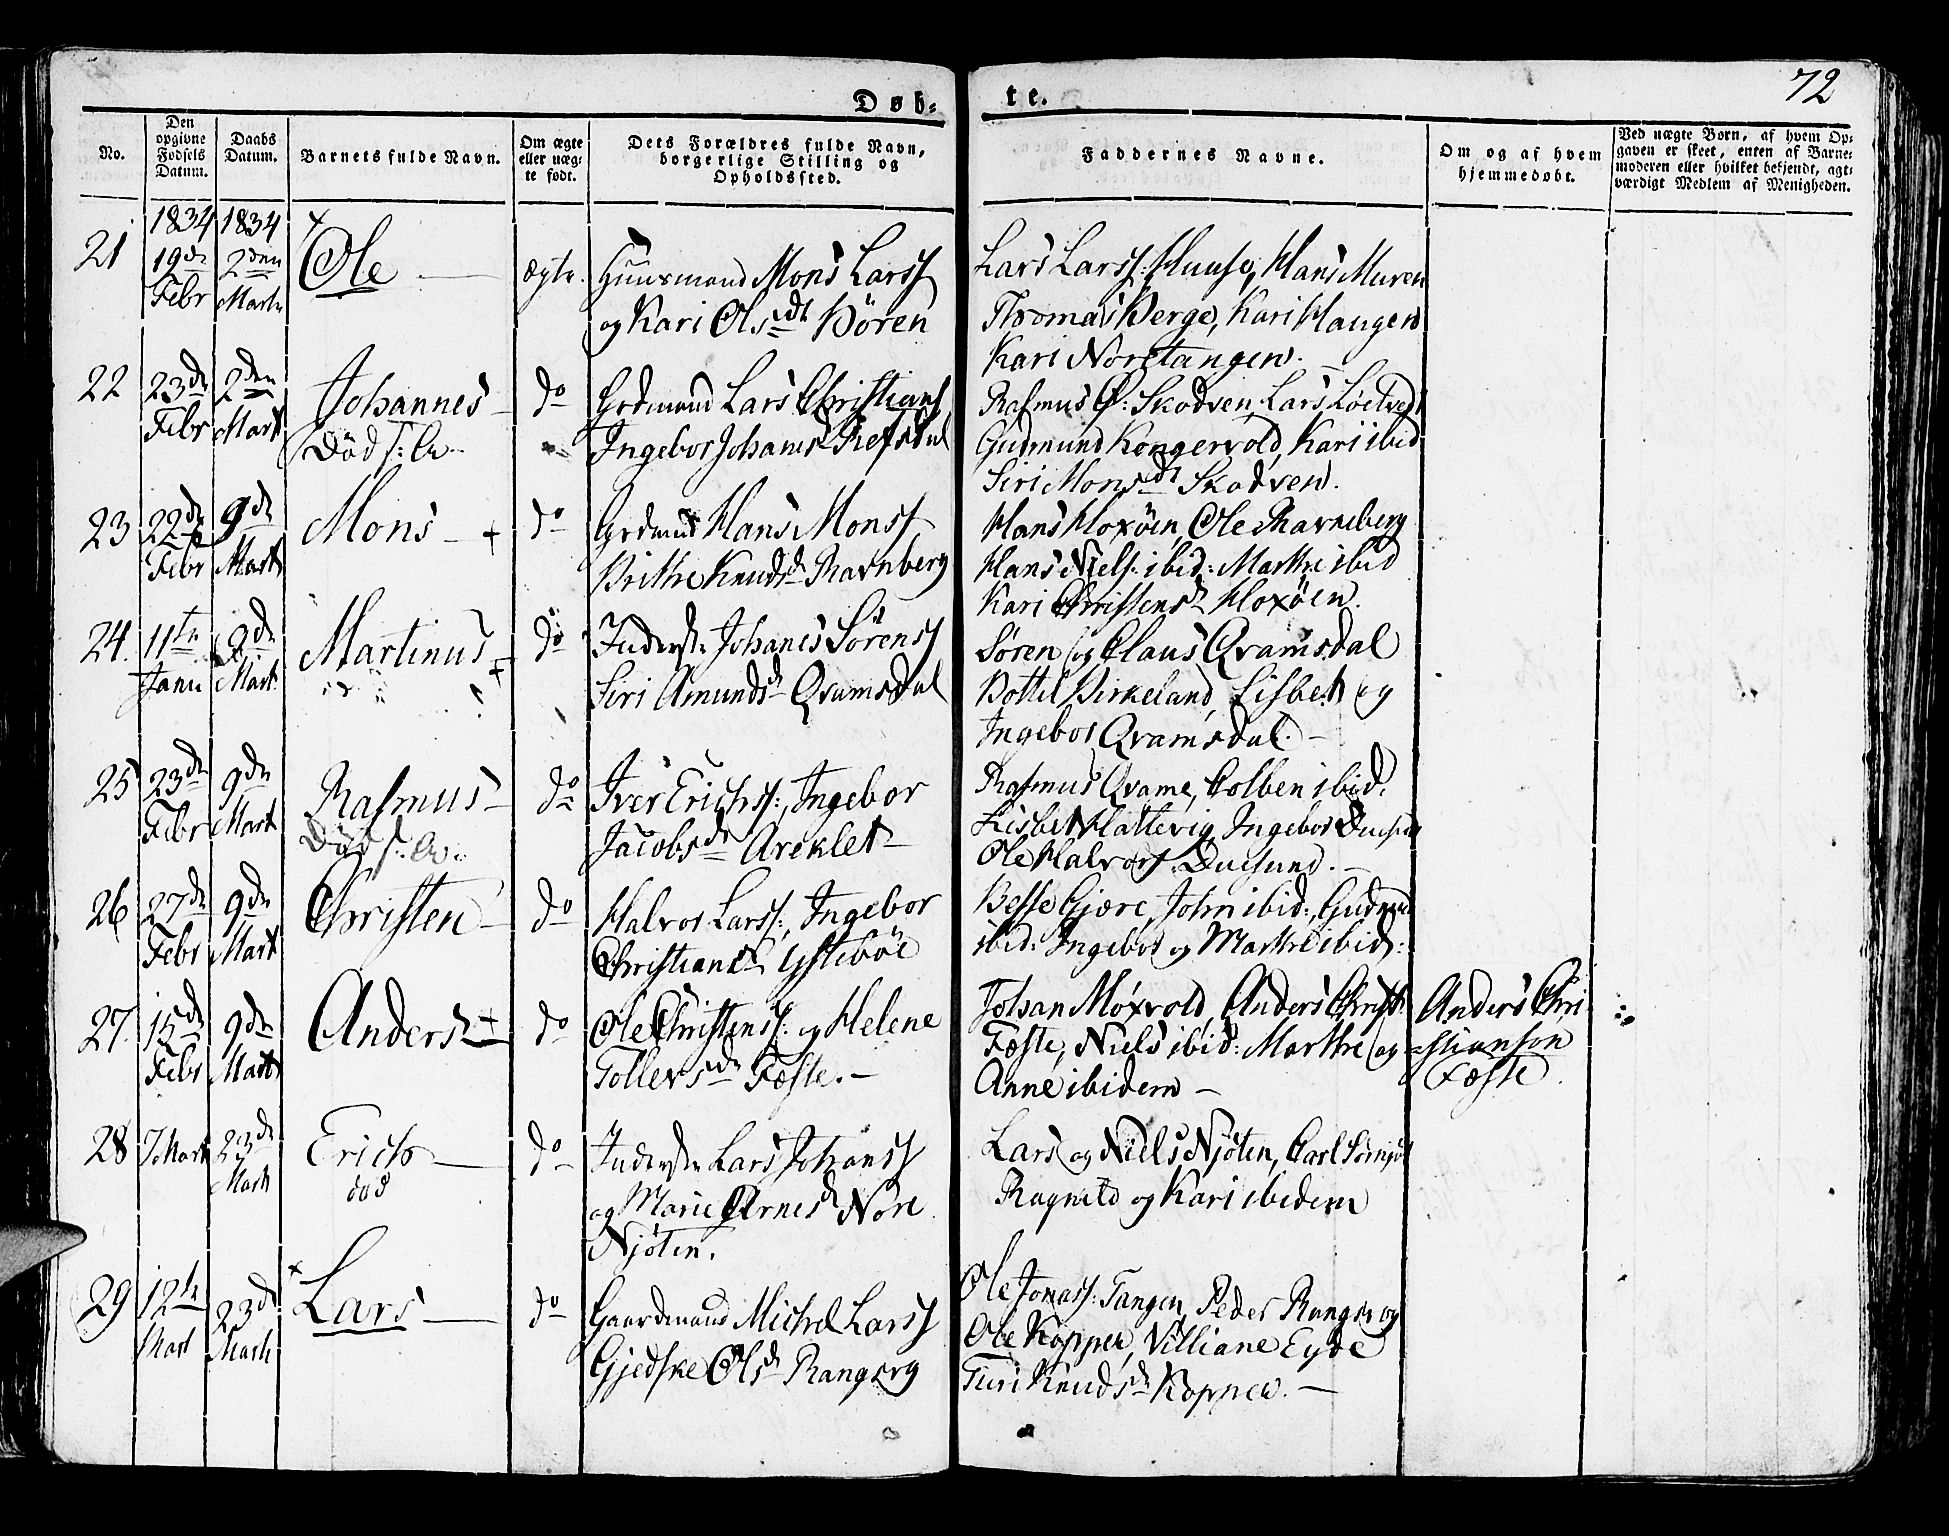 72
Døb-
te.
No.
Den opgivne Fødsels Datum.
Daabs Datum.
Barnets fulde Navn.
Om ægte eller uæg- te født.
Dets Forældres fulde Navn, borgerlige Stilling og Opholdssted.
Faddernes Navne.
Om og af hvem hjemmedøbt.
Ved uægte Børn, af hvem Op- gaven er skeet, enten af Barne- moderen eller hvilket bekjendt, agt- værdigt Medlem af Menigheden.
1834 1834
21 19de Febr 2den Marts
Ole
ægte
Huusmand Mons Larss
og Kari Olsdt Bören
Lars Larss: Huuse, Hans Muren
Thomas Berge, Kari Haugen
Kari Noretangen
22 23de Febr 2den Mart
Johannes
Död
do
Grdmand Lars Christians
Ingebor Johansd Refsdal
Rasmus O: Skodven, Lars Löetvedt
Gudmund Kongervold, Kari ibid
Siri Monsdt Skodven.
23 22de Febr 9de Mart
Mons
do
Grdmand Hans Monss
Brithe Knudsd Ravnberg
Hans Hoxöen, Ole Ravneberg
Hans Niels: ibid: Marthe ibid
Kari Christensd Hoxöen.
24. 11te Janu 9de Mart
Martinus
do
Inderste Johanes Sörenss
Siri Amundsd Qvamsdal
Søren og Claus Qvamsdal
Bottel Birkeland, Lisbet og
Ingebor Qvamsdal
25 23de Febr 9de Mart
Rasmus
Död
do
Iver Erichss:, Ingebor
Jacobsdt Areklet
Rasmus Qvame, Colben ibid.
Lisbet Hattevig, Ingebor
Ole Halvors Duesund.
26 27de Febr 9de Mart
Christen
do
Halvor Larss:, Ingebor
Christiansd Ystebøe
Besse Gjære, John ibid:, Gudmund
ibid: Ingebor og Marthe ibid:
27. 15de Febr 9de Mart
Anders
do
Ole Christenss: og Helene
Tollevsdt Fæste.
Johan Moxvold, Anders Christ:
Fæste, Niels ibid: Marthe og
Anne ibidem
Anders Chri-
stianson
Fæste.
28 7 Mart 23de Mart
Erich
död
do
Inderste Lars Johanss
og Marie Arnesd Nore
Njöten.
Lars og Niels Njöten, Carl
Ragnild og Kari ibidem
29 12te Mart 23de Mart
Lars
do
Gaardmand Michel Larss
Gjedske Olsd Rangerg
Ole Jonass: Tangen, Peder Rangerog
Ole Kopper, Villiane Eyde
Turi Knudsd Kopper.